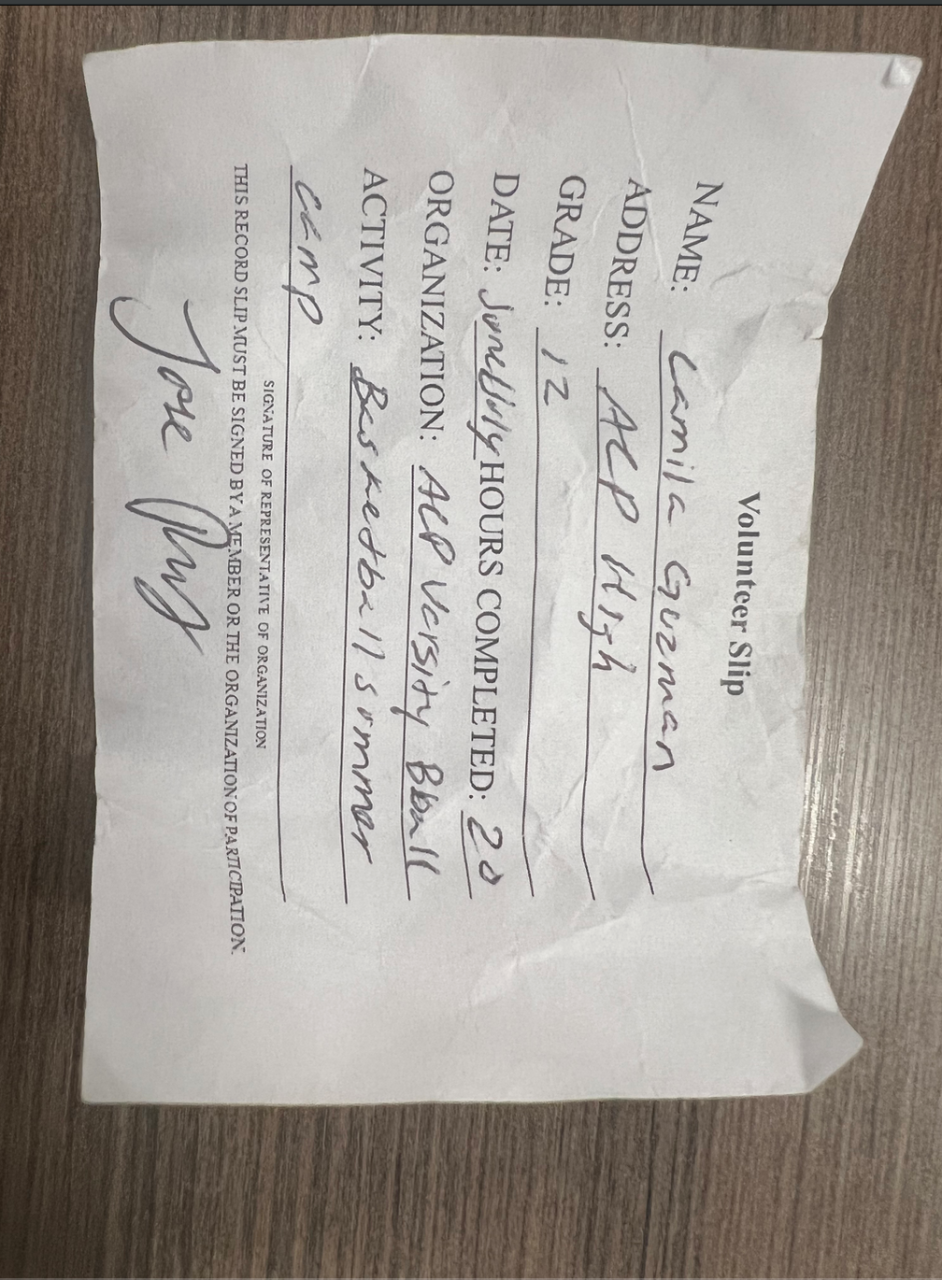 Volunteer Slip
NAME: Camila Guzman
ADDRESS: ALP High
GRADE: 12
DATE: June/July HOURS COMPLETED: 20
ORGANIZATION: ALP Varsity Bball
ACTIVITY: Basketball summer
camp
SIGNATURE OF REPRESENTATIVE OF ORGANIZATION
THIS RECORD SLIP MUST BE SIGNED BY A MEMBER OR THE ORGANIZATION OF PARTICIPATION.
Jose